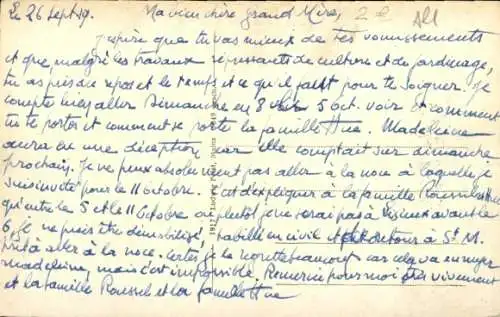 Le 26 Sept 19. Ma bien chère grand Mère, 2 e
J'espère que tu vas mieux de tes vomissements
et que, malgré les travaux de culture et de jardinage,
tu as pris du repos et le temps et ce qu'il faut pour te soigner. Je
compte bien aller Dimanche en 8 5 oct. voir et comment
tu te portes et comment se porte la famille Hue. Madeleine
aura eu une déception car elle comptait sur dimanche
prochain. Je ne peux absolument pas aller à la noce à laquelle je
suis invité pour le 11 octobre. expliquer à la famille Roussel
qu'entre le 5 et le 11 Octobre ou plutôt je ne serai pas à Lisieux avant le
6, je ne puis être démobilisé, habillé en civil et de retour à St M.
prêt à aller à la noce. Certes je le regrette beaucoup car cela va ennuyer
Madeleine, mais c'est impossible. Remercie pour moi très vivement
et la famille Roussel et la famille Hue